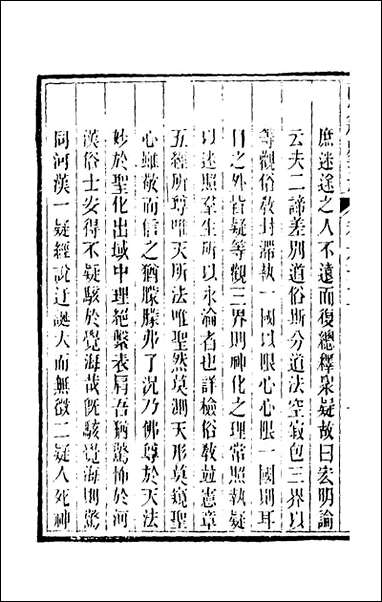 庶迷途之人不遠而復總釋衆疑故曰宏明論
云夫二諦差別道俗斯分道法空寂包三界以
等觀俗敎封滯執一國以限心心限一國則耳
目之外皆疑等觀三界則神化之理常照執疑
以迷照羣生所以永淪者也詳檢俗敎並憲章
五經所尊唯天所法唯聖然莫測天形莫窺聖
心雖敬而信之猶朦朦弗了況乃佛尊於天法
妙於聖化出域中理絕繫表肩吾猶驚怖於河
漢俗士安得不疑駭於覺海哉旣駭覺海則驚
同河漢一疑經說迂誕大而無徵二疑人死神